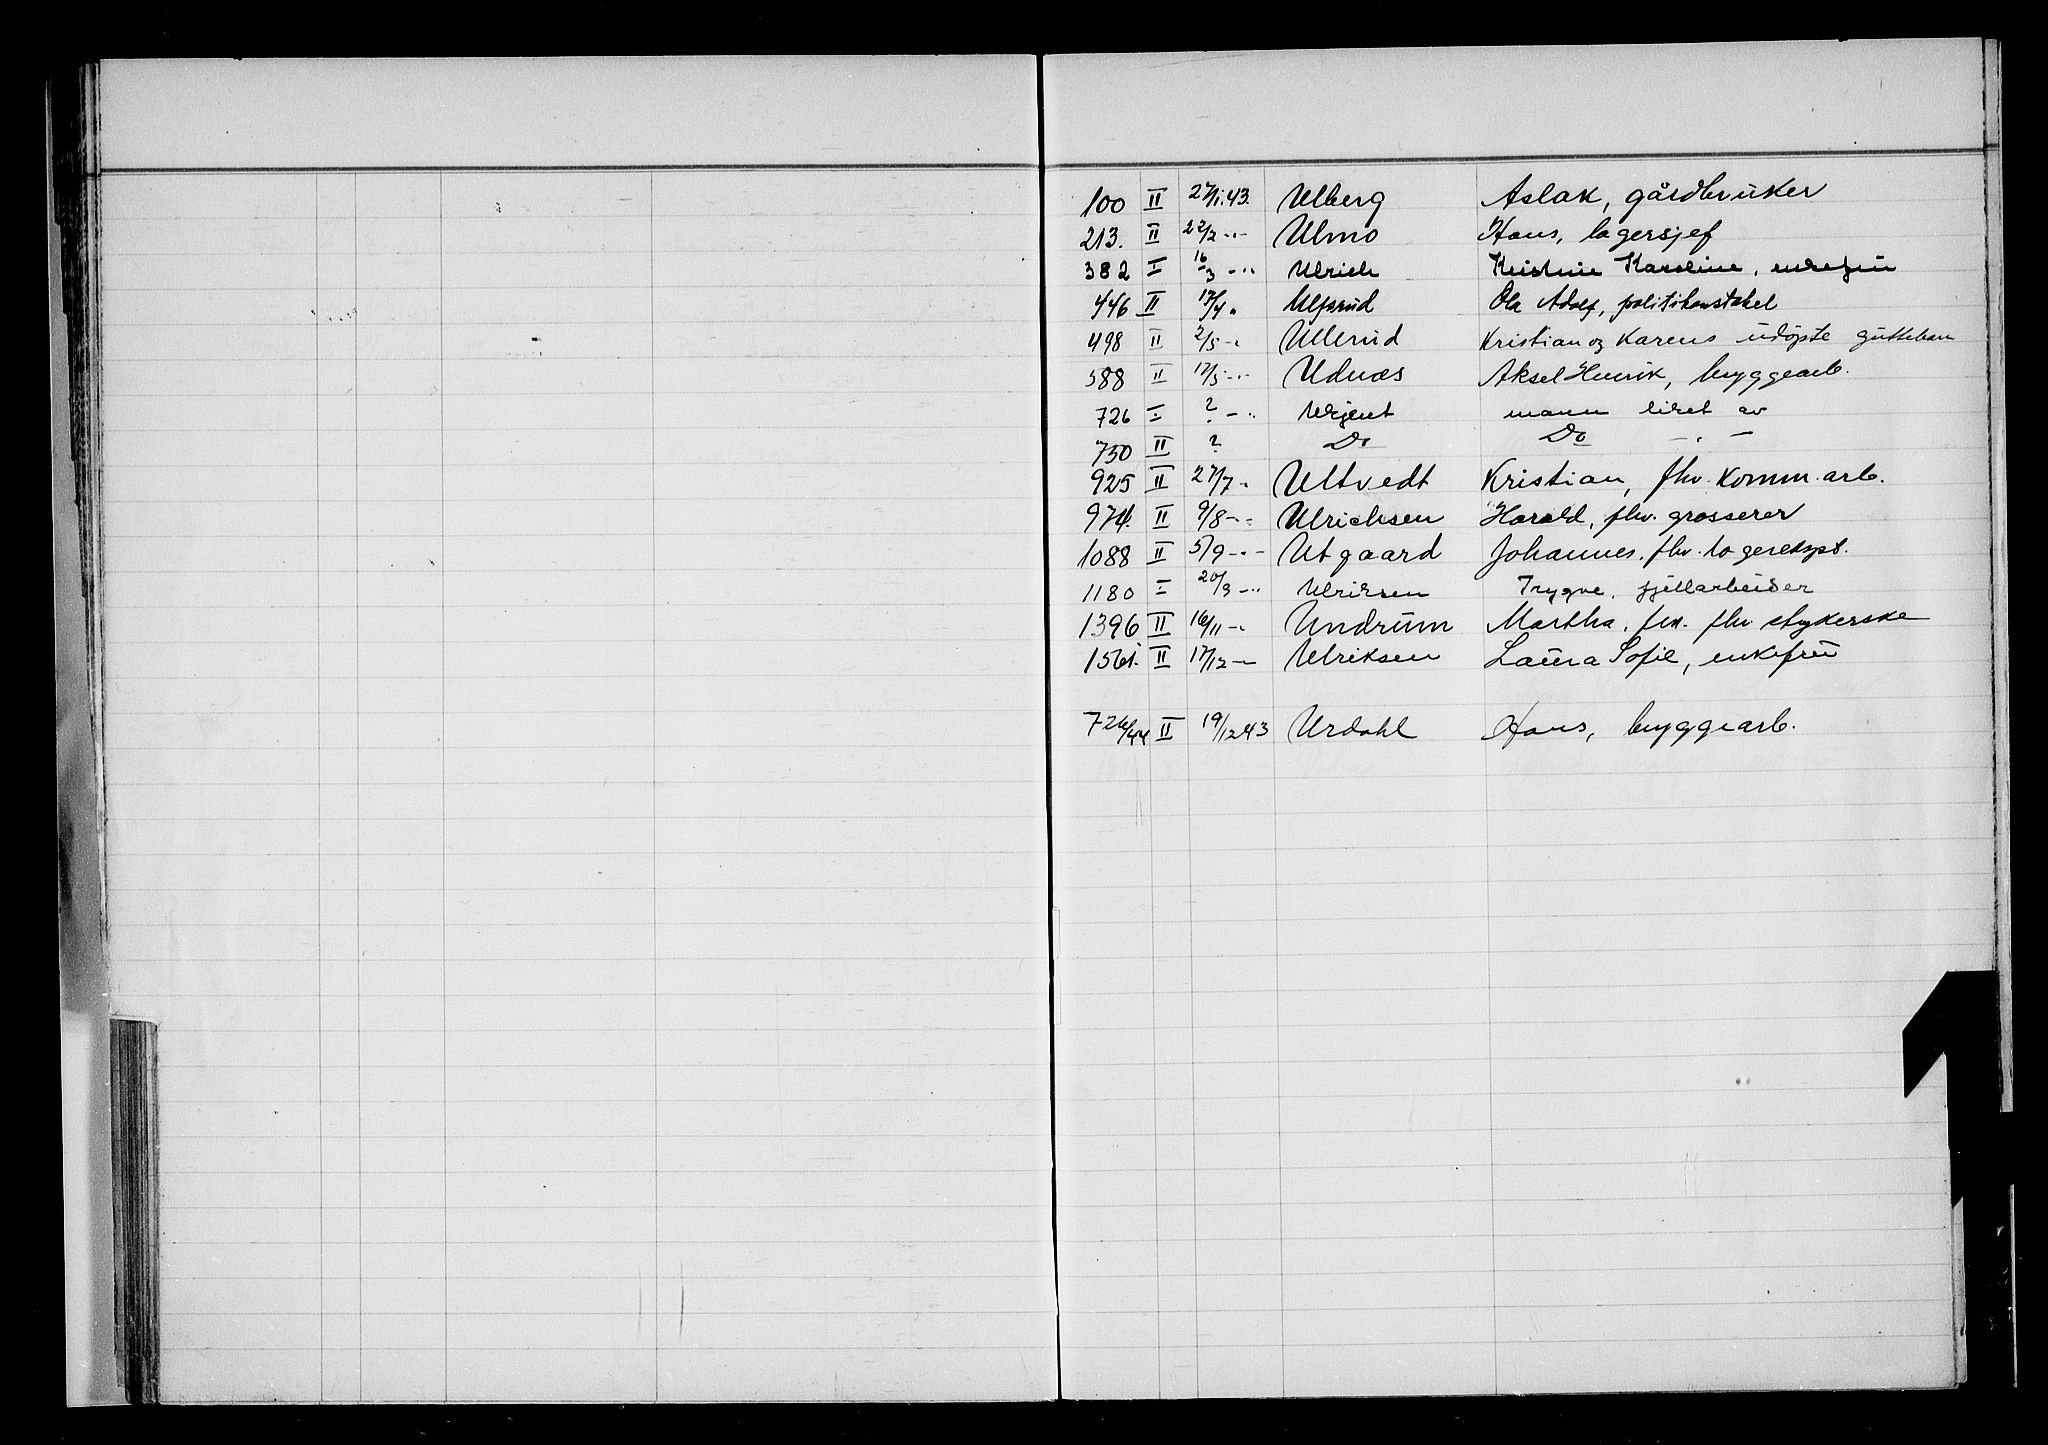 100 II 27/1.43. Ulberg Aslak, gårdbruker
213. II 22/2 -"- Ulmo Hans, lagersjef
382 I 16/3 -"- Ulrich Kristine Karoline, enkefru
446 II 17/4 " Ulfsrud Ola Adolf, politikonstabel
498 II 2/5 -" Ullerud Kristian og Karens udøpte guttebarn
588 II 17/5 -"- Udnæs Aksel Henrik, bryggearb.
726 I ? -" Ukjent mann liket av
750 II ? Do Do -"-
925 II 27/7 -" Ultvedt Kristian, fhv. komm. arb.
974. II 9/8 -"- Ulrichsen Harald, fhv. grosserer
1088 II 5/9 -"- Utgaard Johannes, fhv. lagereksp.
1180 I 20/9 -"- Ulriksen Trygve, fjellarbeider
1396 II 16/11 -" Undrum Martha, frk. fhv strykerske
1561. II 17/12 -"- Ulriksen Laura Sofie, enkefru
726/44 II 19/12 43 Urdahl Hans, bryggearb.